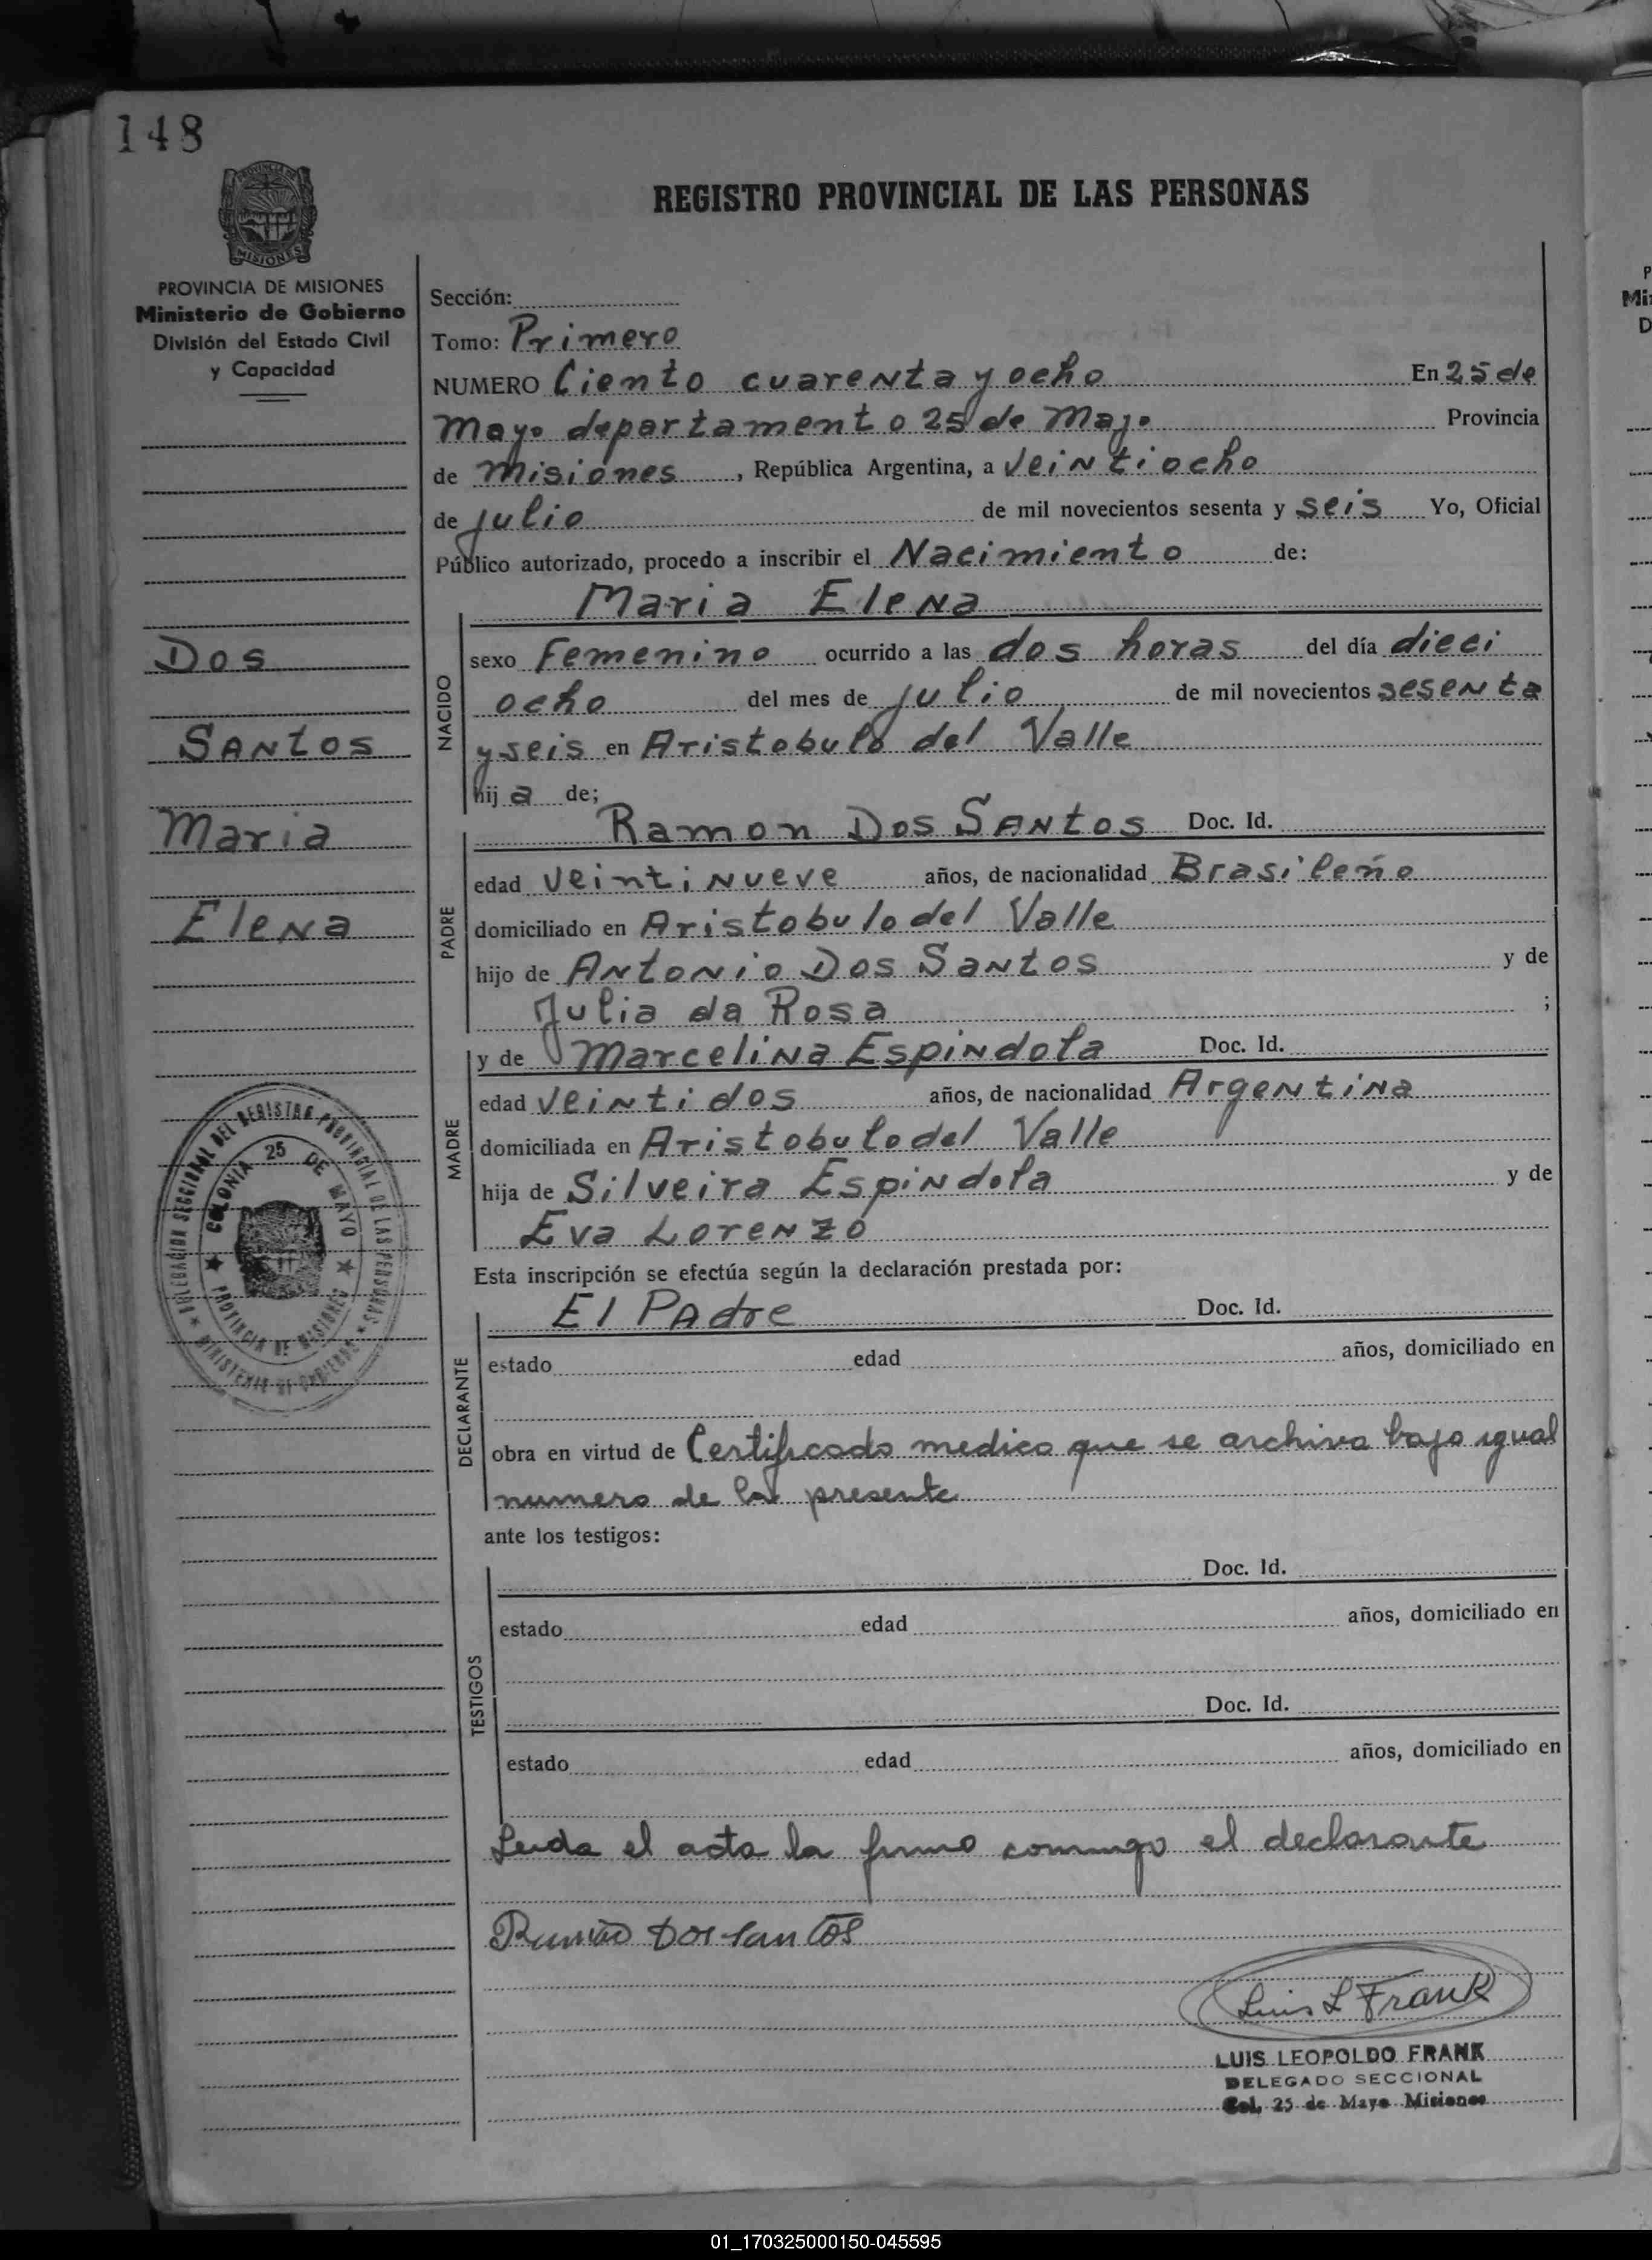 148
PROVINCIA DE
MISIONES
REGISTRO PROVINCIAL DE LAS PERSONAS
PROVINCIA DE MISIONES
Ministerio de Gobierno
División del Estado Civil
y Capacidad
Dos
Santos
Maria
Elena
DELEGACION SECCIONAL DEL REGISTRO PROVINCIAL DE LAS PERSONAS
MINISTERIO DE GOBIERNO
COLONIA 25 DE MAYO
PROVINCIA DE MISIONES
Sección:
Tomo: Primero
NUMERO Ciento cuarenta y ocho En 25 de
Mayo departamento 25 de Mayo Provincia
de Misiones, República Argentina, a Veintiocho
de julio de mil novecientos sesenta y seis Yo, Oficial
Público autorizado, procedo a inscribir el Nacimiento de:
NACIDO
Maria Elena
sexo Femenino ocurrido a las dos horas del día dieci
ocho del mes de julio de mil novecientos sesenta
y seis en Aristobulo del Valle
hij a de;
PADRE
Ramon Dos Santos Doc. Id.
edad veintinueve años, de nacionalidad Brasileño
domiciliado en Aristobulo del Valle
hijo de Antonio Dos Santos y de
Julia da Rosa ;
MADRE
y de Marcelina Espindola Doc. Id.
edad veintidos años, de nacionalidad Argentina
domiciliada en Aristobulo del Valle
hija de Silveira Espindola y de
Eva Lorenzo
Esta inscripción se efectúa según la declaración prestada por:
DECLARANTE
El Padre Doc. Id.
estado edad años, domiciliado en
obra en virtud de Certificado medico que se archiva bajo igual
numero de la presente
ante los testigos:
TESTIGOS
Doc. Id.
estado edad años, domiciliado en
Doc. Id.
estado edad años, domiciliado en
Leida el acta la firmo conmigo el declarante
Dos Santos
Luis L Frank
LUIS LEOPOLDO FRANK
DELEGADO SECCIONAL
Col. 25 de Mayo Misiones
01_170325000150-045595